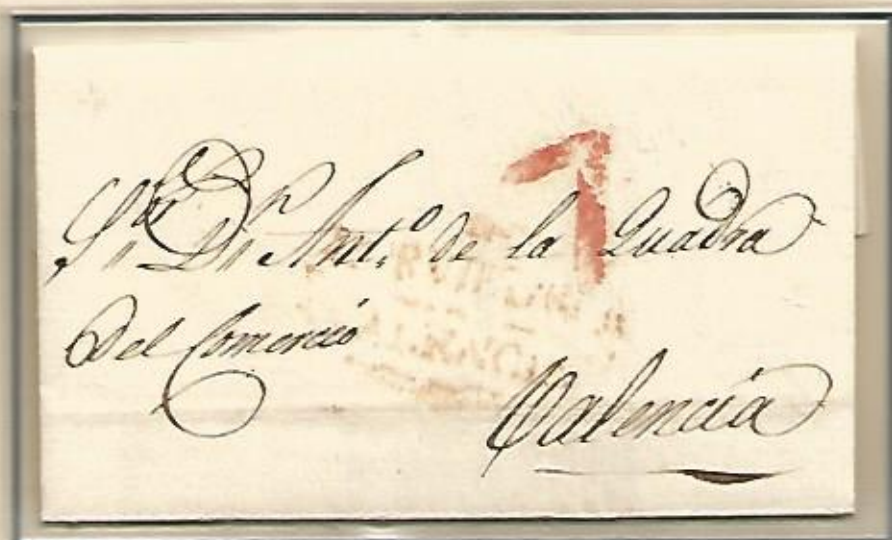 Sr Dn Antº de la Quadra
7
Del Comercio
Valencia